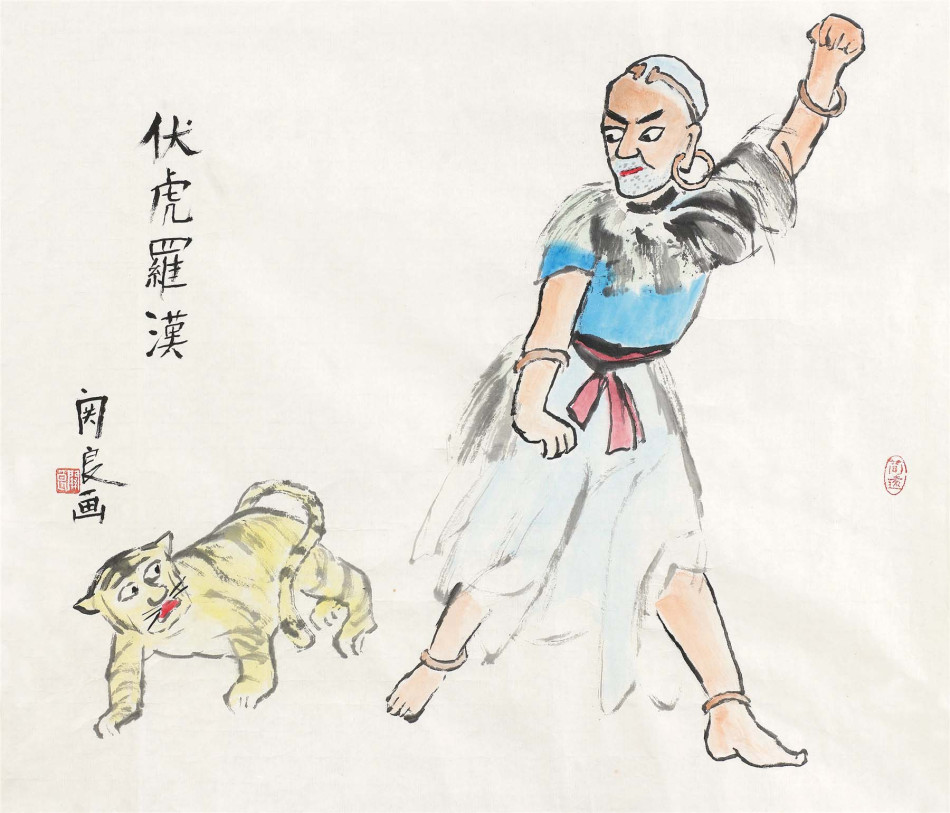 伏虎羅漢
関良画